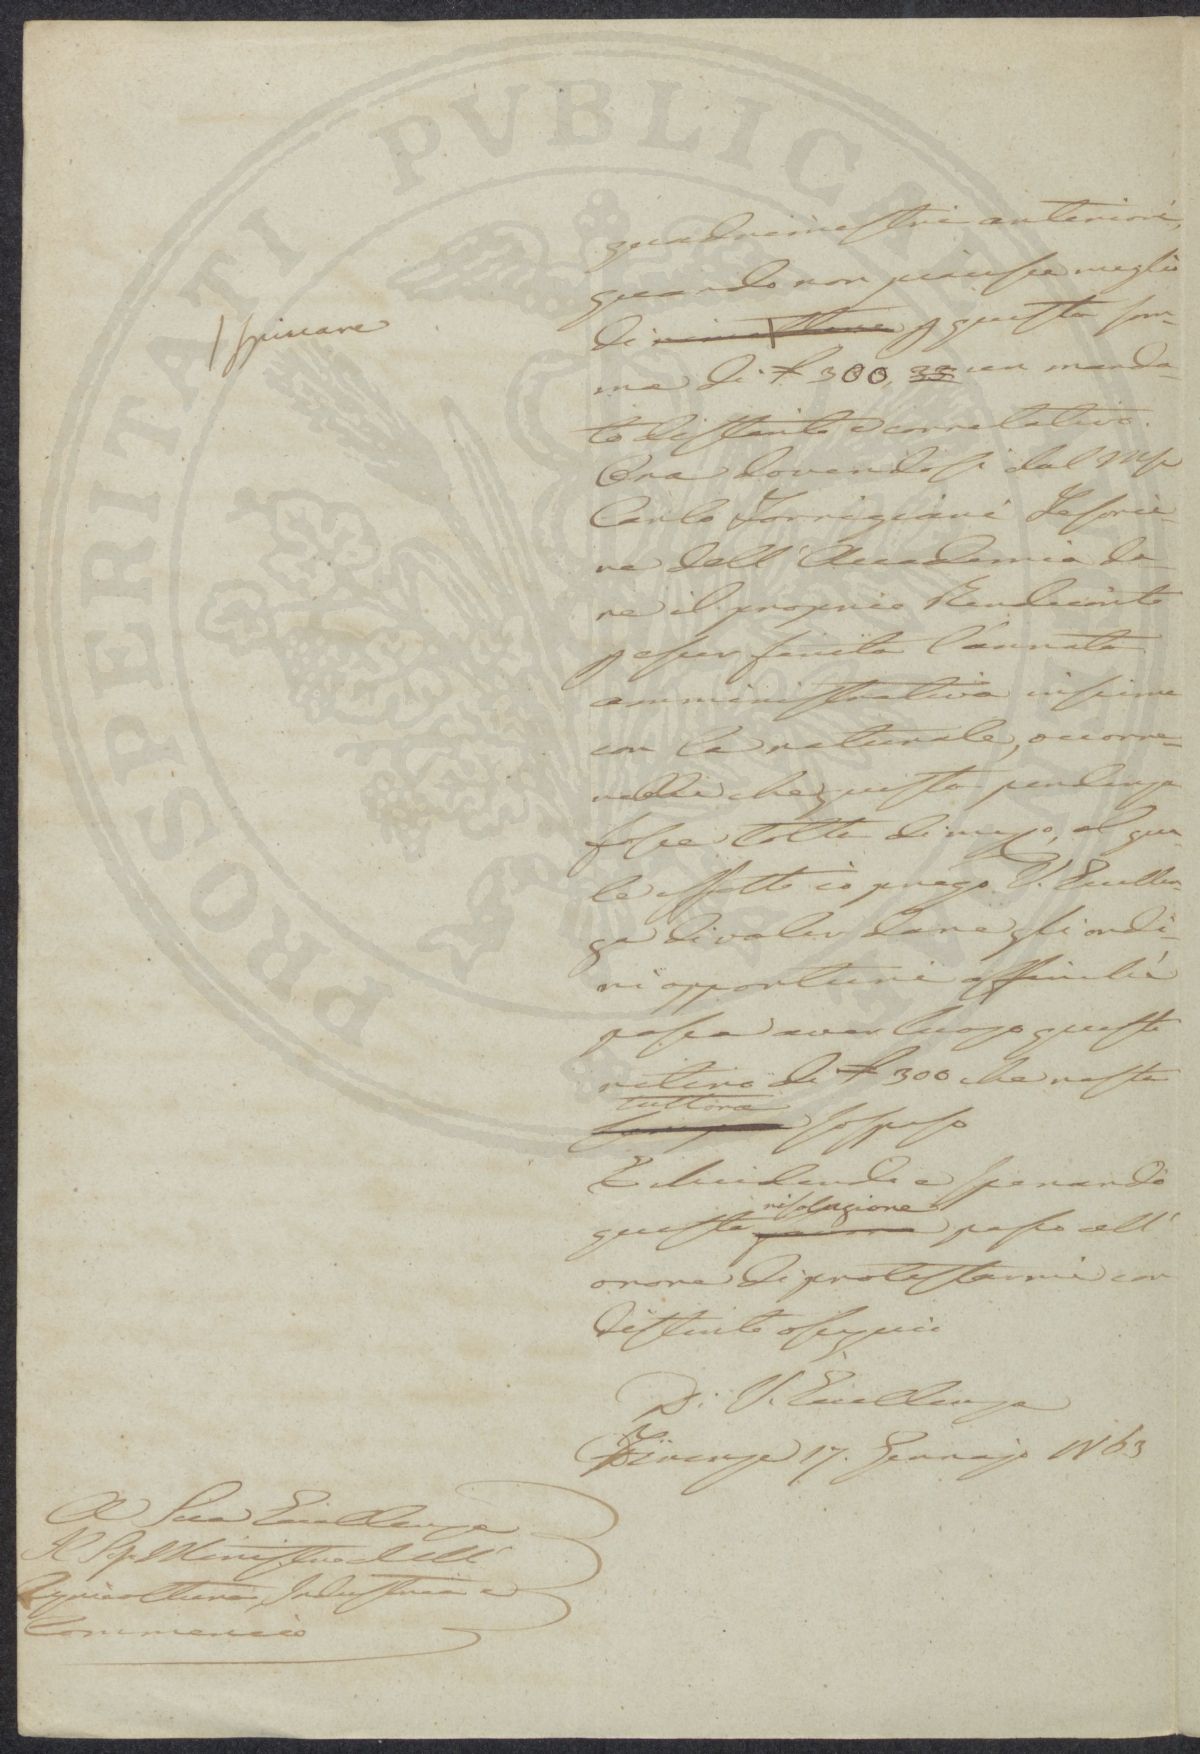 PROSPERITATI PVBLICAE
quadrimestri anteriori,
quando non piacesse meglio
di p questa som-
ma di £ 300, 33 un manda-
to distinto e correlativo.
Ora dovendosi dal Mse
Carlo Torrigiani Tesorie-
re dell'Accademia da-
re il proprio Rendiconto
p esser finita l'annata
amministrativa insieme
con la naturale, occorre-
rebbe che questa pendenza
fosse tolta di mezzo, al qua-
le effetto io prego V. Eccellen-
za di voler dare gli ordi-
ni opportuni affinchè
possa aver luogo questo
ritiro di £ 300 che resta
tuttora
sospeso
E chiedendo e sperando
risoluzione
questa passo all'
onore di protestarmi con
distinto ossequio
Di V. Eccellenza
Firenze 17. Gennajo 1863
A Sua Eccellenza
Il Sig. Ministro dell'
Agricoltura, Industria e
Commercio